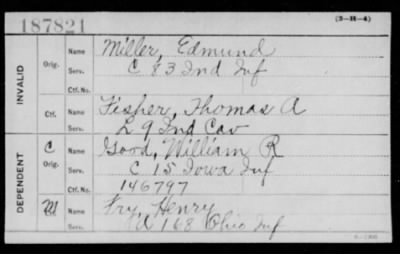 187821
(3-H-4)
INVALID
Orig. Name Miller, Edmund
Serv. C 83 Ind Inf
Ctf. No.
Ctf. Name Fisher, Thomas A
Serv. L 9 Ind Cav
DEPENDENT
C Orig. Name Good, William R
Serv. C 15 Iowa Inf
Ctf. No. 146797
M Name Fry, Henry
Serv. A 168 Ohio Inf